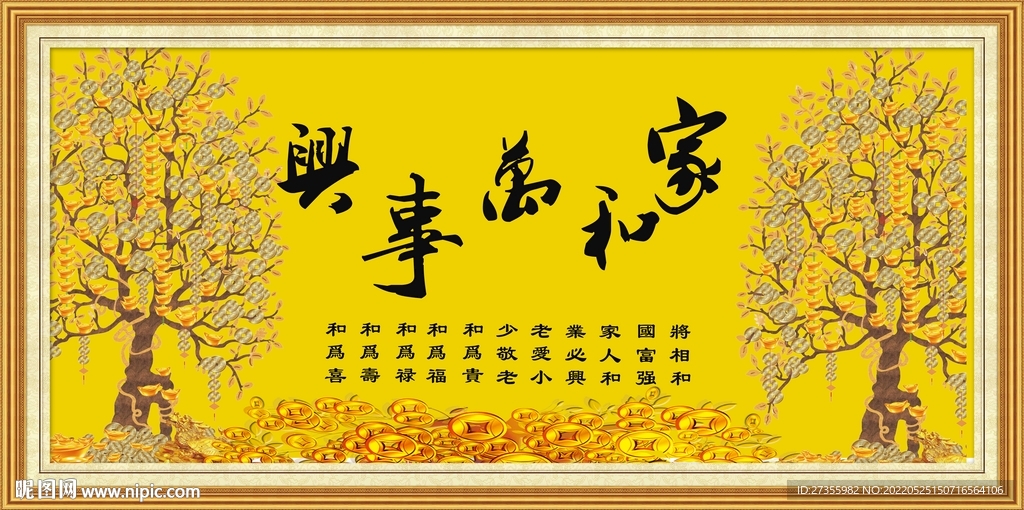 家和萬事興
將相和
國富强
家人和
業必興
老愛小
少敬老
和爲貴
和爲福
和爲禄
和爲壽
和爲喜
昵图网 www.nipic.com
ID:27355982 NO:20220525150716564106